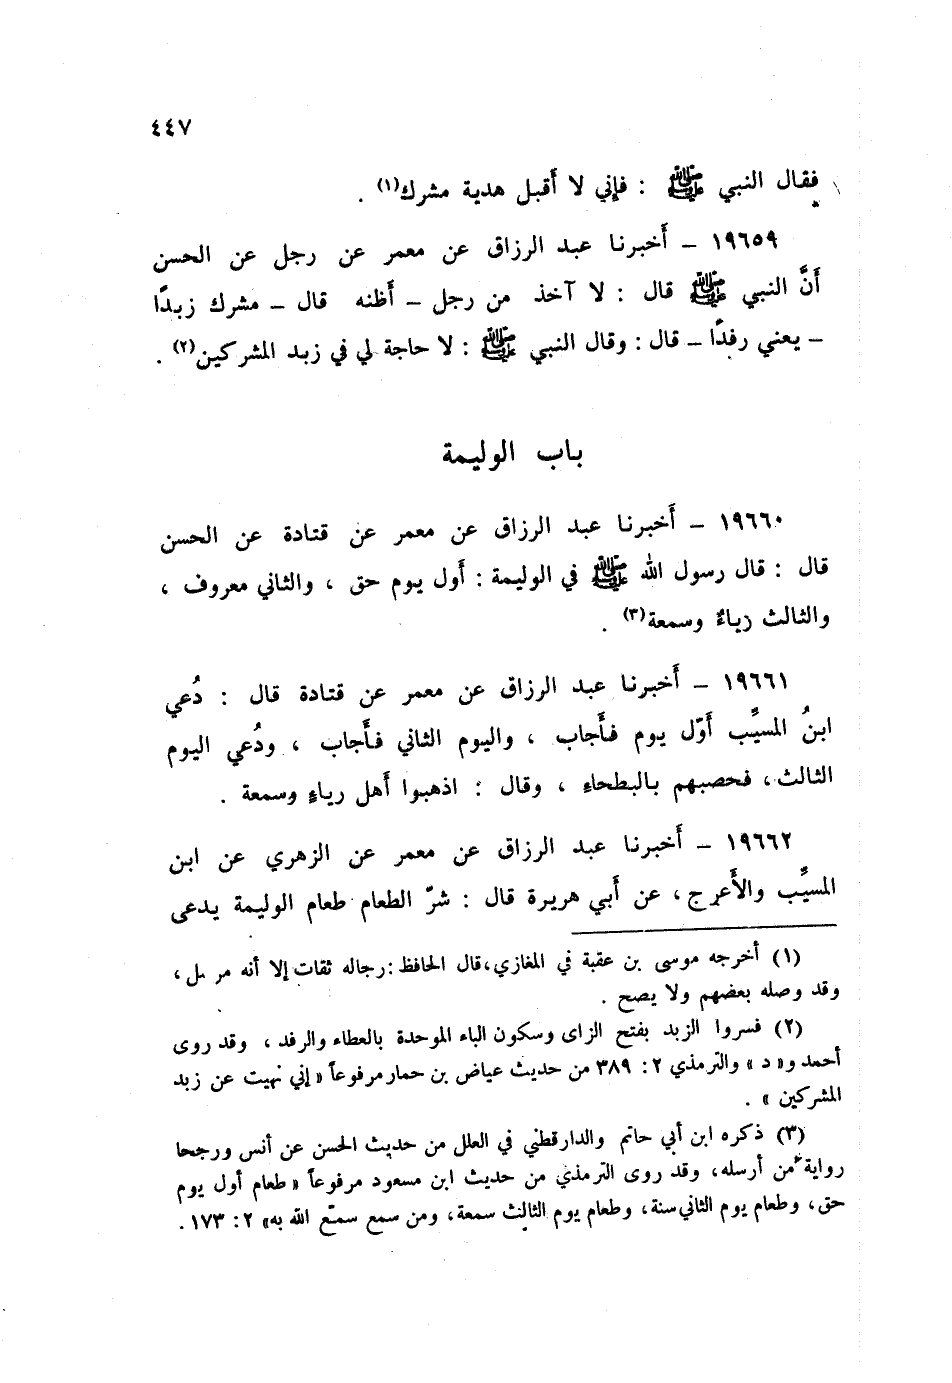 ٤٤٧
فقال النبي ﷺ : فإني لا أقبل هدية مشرك(١) .
١٩٦٥٩ – أخبرنا عبد الرزاق عن معمر عن رجل عن الحسن
أنَّ النبي ﷺ قال : لا آخذ من رجل – أظنه قال – مشرك زبدًا
– يعني رفدًا – قال : وقال النبي ﷺ : لا حاجة لي في زبد المشركين(٢) .
باب الوليمة
١٩٦٦٠ – أخبرنا عبد الرزاق عن معمر عن قتادة عن الحسن
قال : قال رسول الله ﷺ في الوليمة : أول يوم حق ، والثاني معروف ،
والثالث رياءٌ وسمعة(٣) .
١٩٦٦١ – أخبرنا عبد الرزاق عن معمر عن قتادة قال : دُعي
ابنُ المسيَّب أوّل يوم فأجاب ، واليوم الثاني فأجاب ، ودُعي اليوم
الثالث ، فحصبهم بالبطحاءِ ، وقال : اذهبوا أهل رياءٍ وسمعة .
١٩٦٦٢ – أخبرنا عبد الرزاق عن معمر عن الزهري عن ابن
المسيَّب والأعرج ، عن أبي هريرة قال : شرّ الطعام طعام الوليمة يدعى
(١) أخرجه موسى بن عقبة في المغازي ، قال الحافظ : رجاله ثقات إلا أنه مرسل ،
وقد وصله بعضهم ولا يصح .
(٢) فسروا الزبد بفتح الزاى وسكون الباء الموحدة بالعطاء والرفد ، وقد روى
أحمد و« د » والترمذي ٢ : ٣٨٩ من حديث عياض بن حمار مرفوعاً « إني نهيت عن زبد
المشركين » .
(٣) ذكره ابن أبي حاتم والدارقطني في العلل من حديث الحسن عن أنس ورجحا
رواية من أرسله ، وقد روى الترمذي من حديث ابن مسعود مرفوعاً « طعام أول يوم
حق ، وطعام يوم الثاني سنة ، وطعام يوم الثالث سمعة ، ومن سمع سمّع الله به» ٢ : ١٧٣ .